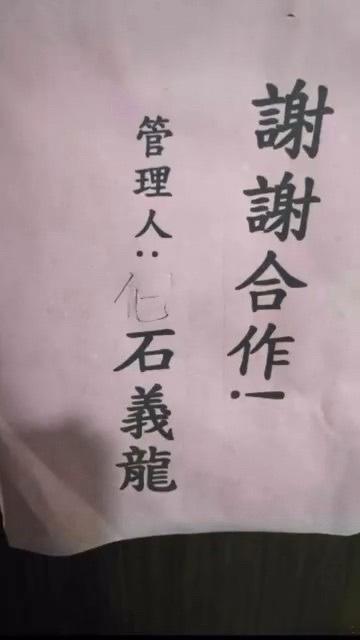 謝謝合作!
管理人:化石義龍